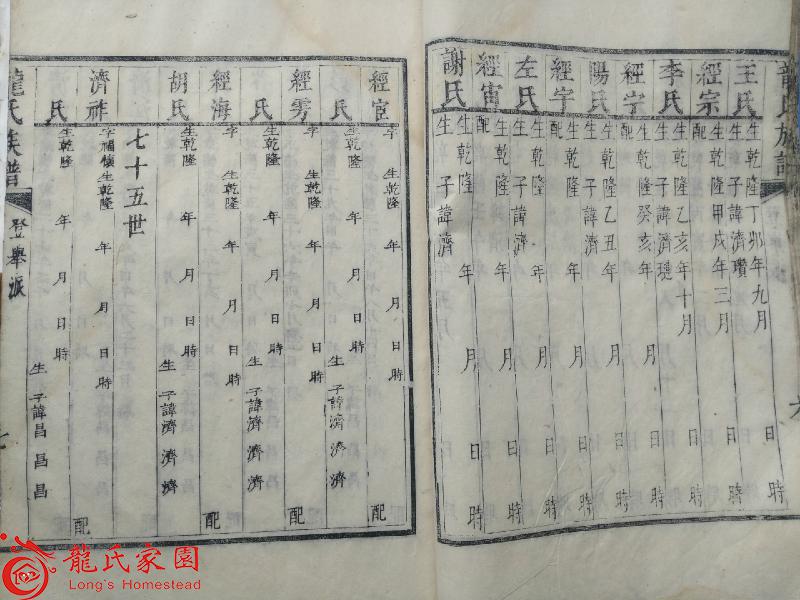 龍氏族譜
王氏 生乾隆丁卯年九月 日 時
生子諱濟瓚
經宗 生乾隆甲戌年三月 日 時
配
李氏 生乾隆乙亥年十月 日 時
生子諱濟璉
經宁 生乾隆癸亥年 月 日 時
配
陽氏 生乾隆乙丑年 月 日 時
生子諱濟
經字 生乾隆 年 月 日 時
配
左氏 生乾隆 年 月 日 時
生子諱濟
經 生乾隆 年 月 日 時
配
謝氏 生乾隆 年 月 日 時
生子諱濟
經宦 字 生乾隆 年 月 日 時 配
氏 生乾隆 年 月 日 時 生子諱濟濟濟
經雱 字 生乾隆 年 月 日 時 配
氏 生乾隆 年 月 日 時 生子諱濟濟濟
經海 字 生乾隆 年 月 日 時 配
胡氏 生乾隆 年 月 日 時 生子諱濟濟濟
七十五世
濟祚 字福儀 生乾隆 年 月 日 時 配
氏 生乾隆 年 月 日 時 生子諱昌昌昌
龍氏族譜 登舉派
龍氏家園
Long's Homestead